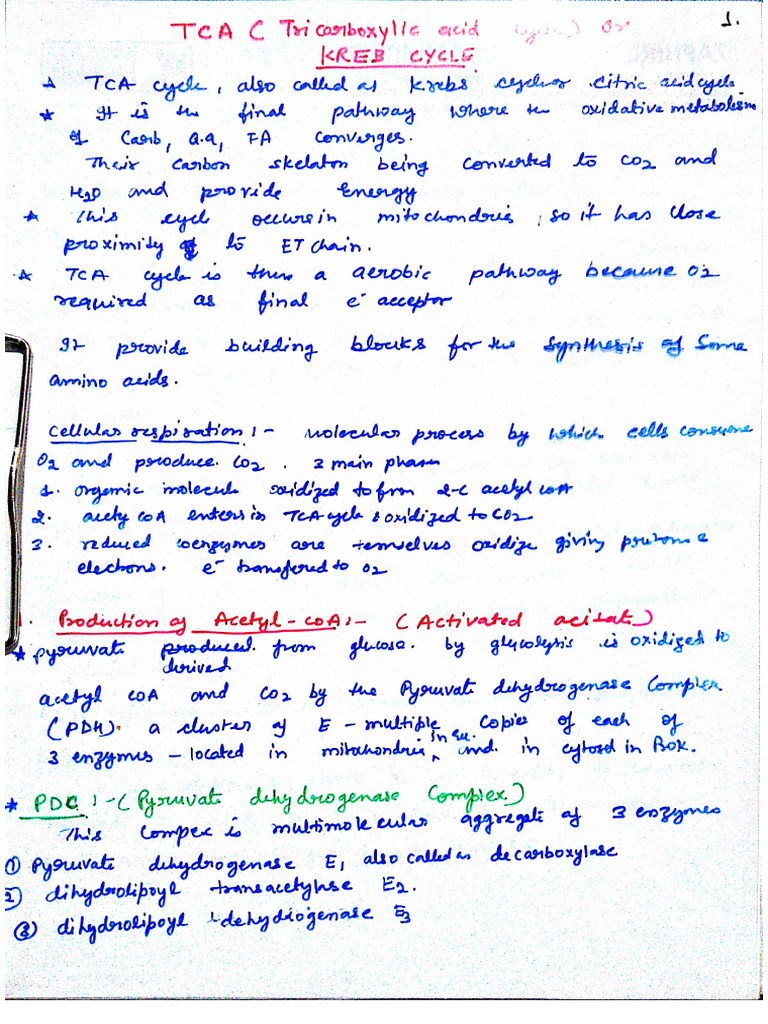 1.
TCA ( Tricarboxylic acid cycle) or
KREB CYCLE
* TCA cycle, also called as Krebs cycle or citric acid cycle
* It is the final pathway where the oxidative metabolism
of Carb, a.a, FA converges.
Their carbon skelaton being converted to CO2 and
H2O and provide energy
* This cycle occurs in mitochondria, so it has close
proximity to ET chain.
* TCA cycle is then a aerobic pathway because O2
required as final e⁻ acceptor
It provide building blocks for the synthesis of some
amino acids.
Cellular respiration :- Molecular process by which cells consume
O2 and produce CO2 . 3 main phases
1. organic molecule oxidized to from 2-C acetyl coA
2. acety coA enters in TCA cycle & oxidized to CO2
3. reduced coenzymes are temselves oxidize giving protons &
electrons. e⁻ transfered to O2
1. Production of Acetyl-coA :- (Activated acitat)
* pyruvate produced from glucose by glycolysis is oxidized to
derived
acetyl coA and CO2 by the Pyruvate dehydrogenase Complex
(PDH). a cluster of E - multiple copies of each of
3 enzymes - located in mitochondria in Eu. and in cytosol in Prok.
* PDC :- (Pyruvate dehydrogenase Complex)
This compex is multimolekular aggregate of 3 enzymes
① Pyruvate dehydrogenase E1, also called as decarboxylase
② dihydrolipoyl transacetylase E2.
③ dihydrolipoyl dehydrogenase E3